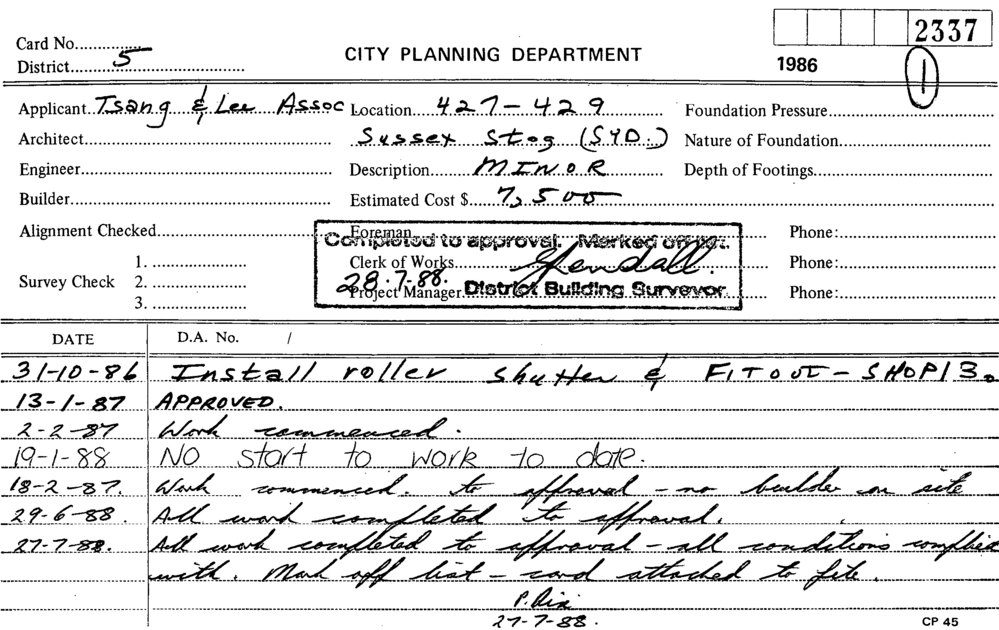 2337
Card No.
District 5
CITY PLANNING DEPARTMENT
1986
1
Applicant Tsang & Lee Assoc
Location 427-429
Foundation Pressure
Architect
Sussex St (SYD.)
Nature of Foundation
Engineer
Description MINOR
Depth of Footings
Builder
Estimated Cost $ 7,500
Alignment Checked
Foreman
Phone:
Completed to approval. Marked off
Survey Check
1.
Clerk of Works
Phone:
2.
28.7.88.
3.
Project Manager
District Building Surveyor
Phone:
DATE
D.A. No. /
31-10-86 Install roller shutter & FITOUT - SHOP 13.
13-1-87 APPROVED.
2-2-87 Work commenced.
19-1-88 NO start to work to date.
18-2-87. Work commenced. to approval - no builder on site
29-6-88. All work completed to approval.
27-7-88. All work completed to approval - all conditions complied
with. Mark off list - card attached to file.
27-7-88.
CP 45